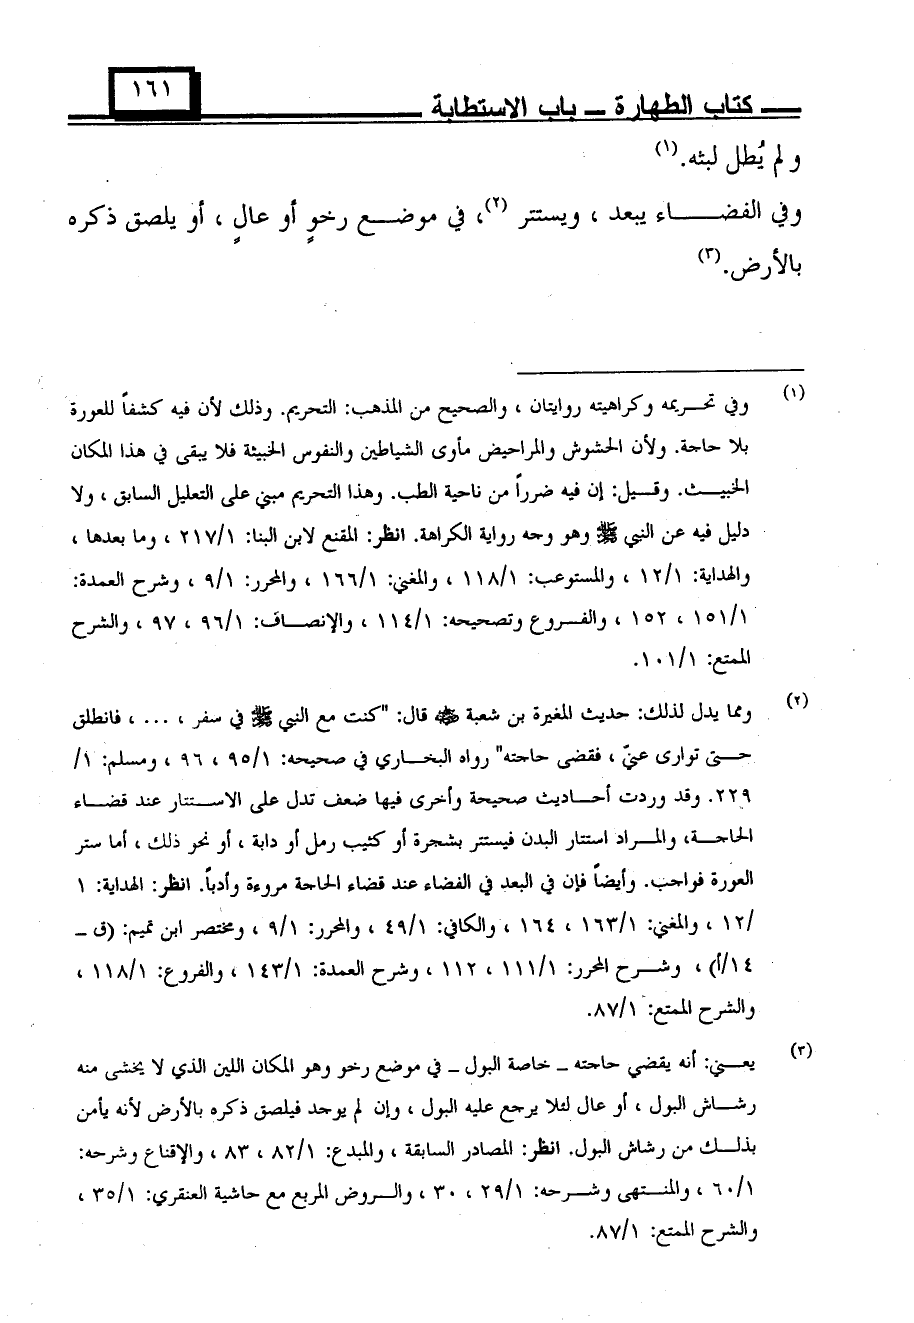 كتاب الطهارة ــ باب الاستطابة ١٦١
و لم يُطل لبثه.(١)
وفي الفضـــاء يبعد ، ويستتر (٢)، في موضـع رخوٍ أو عالٍ ، أو يلصق ذكره
بالأرض.(٣)
(١) وفي تحريمه وكراهيته روايتان ، والصحيح من المذهب: التحريم. وذلك لأن فيه كشفاً للعورة
بلا حاجة. ولأن الحشوش والمراحيض مأوى الشياطين والنفوس الخبيثة فلا يبقى في هذا المكان
الخبيـث. وقـيل: إن فيه ضرراً من ناحية الطب. وهذا التحريم مبني على التعليل السابق ، ولا
دليل فيه عن النبي ﷺ وهو وجه رواية الكراهة. انظر: المقنع لابن البنا: ٢١٧/١ ، وما بعدها ،
والهداية: ١٢/١ ، والمستوعب: ١١٨/١ ، والمغني: ١٦٦/١ ، والمحرر: ٩/١ ، وشرح العمدة:
١٥١/١ ، ١٥٢ ، والفـروع وتصحيحه: ١١٤/١ ، والإنصـاف: ٩٦/١ ، ٩٧ ، والشرح
الممتع: ١٠١/١.
(٢) ومما يدل لذلك: حديث المغيرة بن شعبة ﷺ قال: "كنت مع النبي ﷺ في سفر ، ... ، فانطلق
حـتى توارى عنّي ، فقضى حاجته" رواه البخـاري في صحيحه: ٩٥/١ ، ٩٦ ، ومسلم: ١/
٢٢٩. وقد وردت أحـاديث صحيحة وأخرى فيها ضعف تدل على الاسـتتار عند قضـاء
الحاجـة، والمـراد استتار البدن فيستتر بشجرة أو كثيب رمل أو دابة ، أو نحو ذلك ، أما ستر
العورة فواجب. وأيضاً فإن في البعد في الفضاء عند قضاء الحاجة مروءة وأدباً. انظر: الهداية: ١
/١٢ ، والمغني: ١٦٣/١ ، ١٦٤ ، والكافي: ٤٩/١ ، والمحرر: ٩/١ ، ومختصر ابن تميم: (ق ــ
١٤/أ) ، وشـرح المحرر: ١١١/١ ، ١١٢ ، وشرح العمدة: ١٤٣/١ ، والفروع: ١١٨/١ ،
والشرح الممتع: ٨٧/١.
(٣) يعـني: أنه يقضي حاجته ــ خاصة البول ــ في موضع رخو وهو المكان اللين الذي لا يخشى منه
رشـاش البول ، أو عال لئلا يرجع عليه البول ، وإن لم يوجد فيلصق ذكره بالأرض لأنه يأمن
بذلـك من رشاش البول. انظر: المصادر السابقة ، والمبدع: ٨٢/١ ، ٨٣ ، والإقناع وشرحه:
٦٠/١ ، والمنـتهى وشـرحه: ٢٩/١ ، ٣٠ ، والـروض المربع مع حاشية العنقري: ٣٥/١ ،
والشرح الممتع: ٨٧/١.